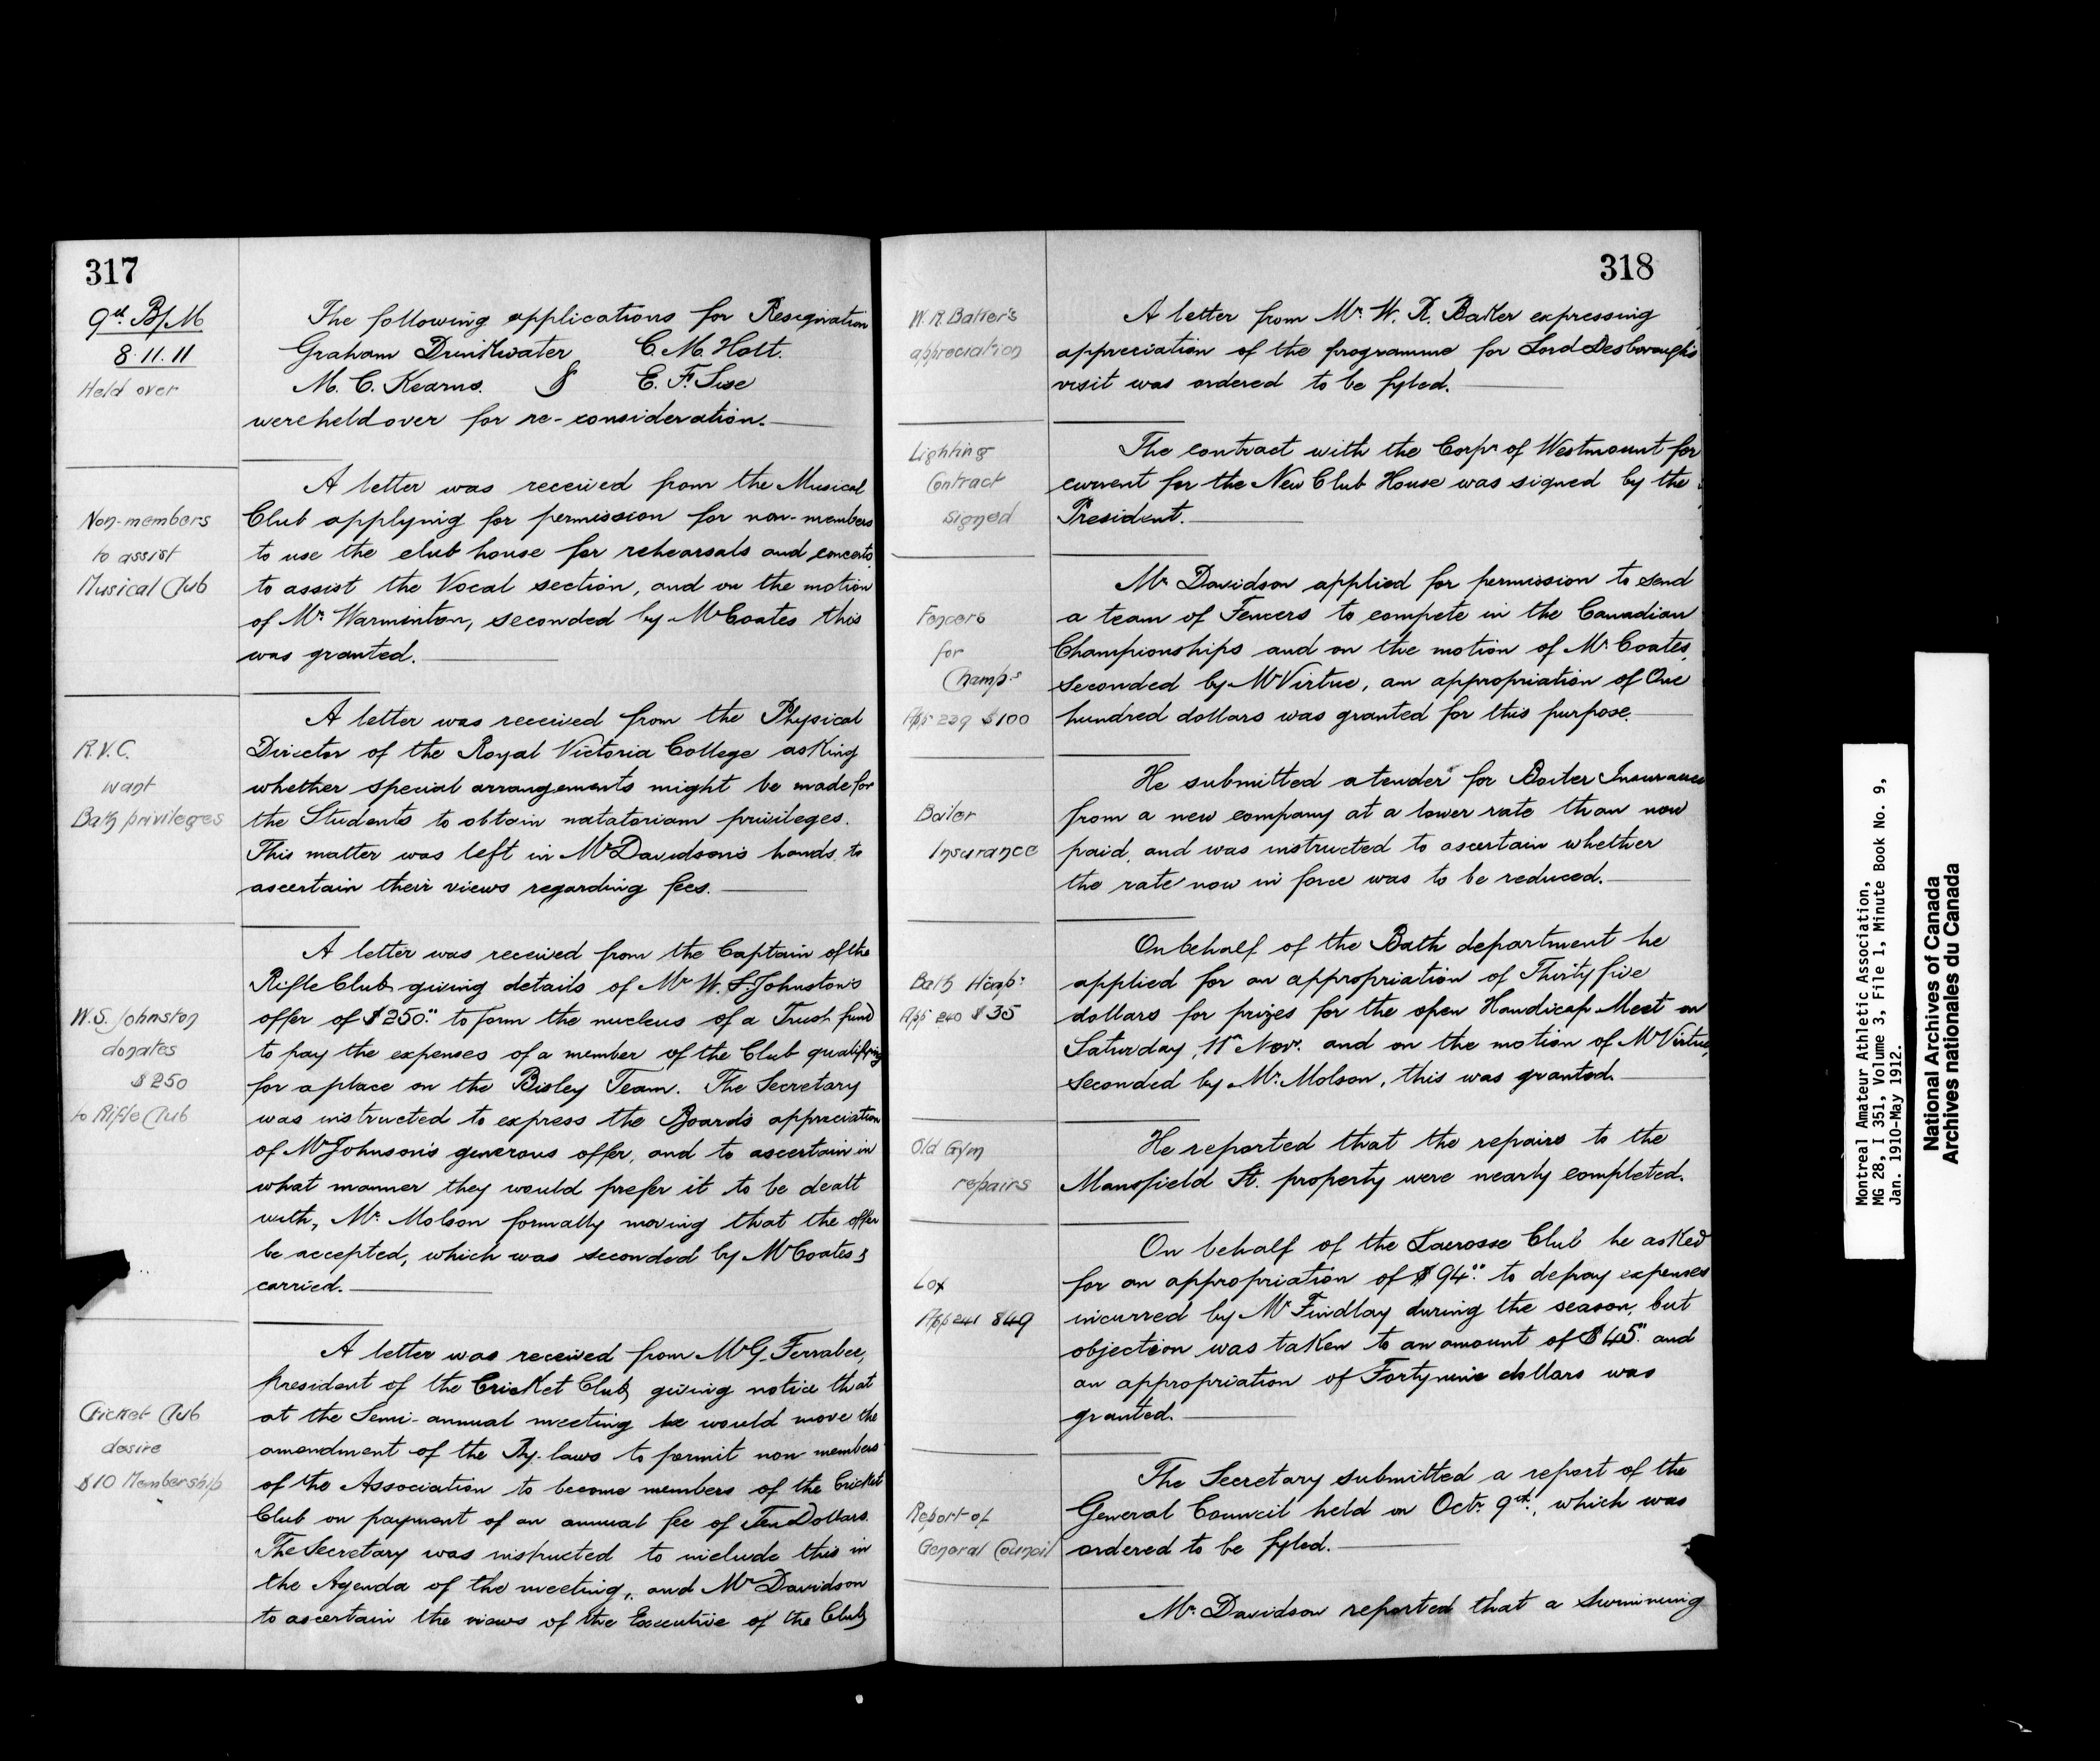 317
9th B/M
8.11.11
Held over
The following applications for Resignation
Graham Drinkwater C. M. Holt.
M. C. Kearns. & E. F. Sise
were held over for re-consideration.
Non-members
to assist
Musical Club
A letter was received from the Musical
Club applying for permission for non-members
to use the club house for rehearsals and concerts,
to assist the Vocal section, and on the motion
of Mr. Warminton, seconded by Mr Coates this
was granted.
R.V.C.
want
Bath privileges
A letter was received from the Physical
Director of the Royal Victoria College asking
whether special arrangements might be made for
the Students to obtain natatoriam privileges.
This matter was left in Mr Davidson's hands, to
ascertain their views regarding fees.
W.S. Johnston
donates
$250
to Rifle Club
A letter was received from the Captain of the
Rifle Club, giving details of Mr W. S. Johnston's
offer of $250.00 to form the nucleus of a Trust fund
to pay the expenses of a member of the Club qualifying
for a place on the Bisley Team. The Secretary
was instructed to express the Board's appreciation
of Mr Johnson's generous offer, and to ascertain in
what manner they would prefer it to be dealt
with, Mr. Molson formally moving that the offer
be accepted, which was seconded by Mr Coates &
carried.
Cricket Club
desire
$10 Membership
A letter was received from Mr G. Ferrabee,
president of the Cricket Club, giving notice that
at the Semi-annual meeting he would move the
amendment of the By-laws to permit non members
of the Association to become members of the Cricket
Club on payment of an annual fee of Ten Dollars.
The Secretary was instructed to include this in
the Agenda of the meeting, and Mr Davidson
to ascertain the views of the Executive of the Club,
318
W. R. Baker's
appreciation
A letter from Mr. W. R. Baker expressing
appreciation of the programme for Lord Desborough's
visit was ordered to be fyled.
Lighting
Contract
signed
The contract with the Corpn of Westmount for
current for the New Club House was signed by the
President.
Fencers
for
Champs
App 239 $100
Mr. Davidson applied for permission to send
a team of Fencers to compete in the Canadian
Championships and on the motion of Mr. Coates,
seconded by Mr Virtue, an appropriation of One
hundred dollars was granted for this purpose.
Boiler
Insurance
He submitted a tender for Boiler Insurance
from a new company at a lower rate than now
paid, and was instructed to ascertain whether
the rate now in force was to be reduced.
Bath H'cap:
App 240 $35
On behalf of the Bath department he
applied for an appropriation of Thirty five
dollars for prizes for the open Handicap Meet on
Saturday, 11th Nov. and on the motion of Mr Virtue,
seconded by Mr. Molson, this was granted.
Old Gym
repairs
He reported that the repairs to the
Mansfield St. property were nearly completed.
Lax
App 241 $49
On behalf of the Lacrosse Club he asked
for an appropriation of $94.00 to defray expenses
incurred by Mr Findlay during the season, but
objection was taken to an amount of $45.00 and
an appropriation of Forty nine dollars was
granted.
Report of
General Council
The Secretary submitted a report of the
General Council held on Octr 9th, which was
ordered to be fyled.
Mr. Davidson reported that a swimming
Montreal Amateur Athletic Association,
MG 28, I 351, Volume 3, File 1, Minute Book No. 9,
Jan. 1910-May 1912.
National Archives of Canada
Archives nationales du Canada